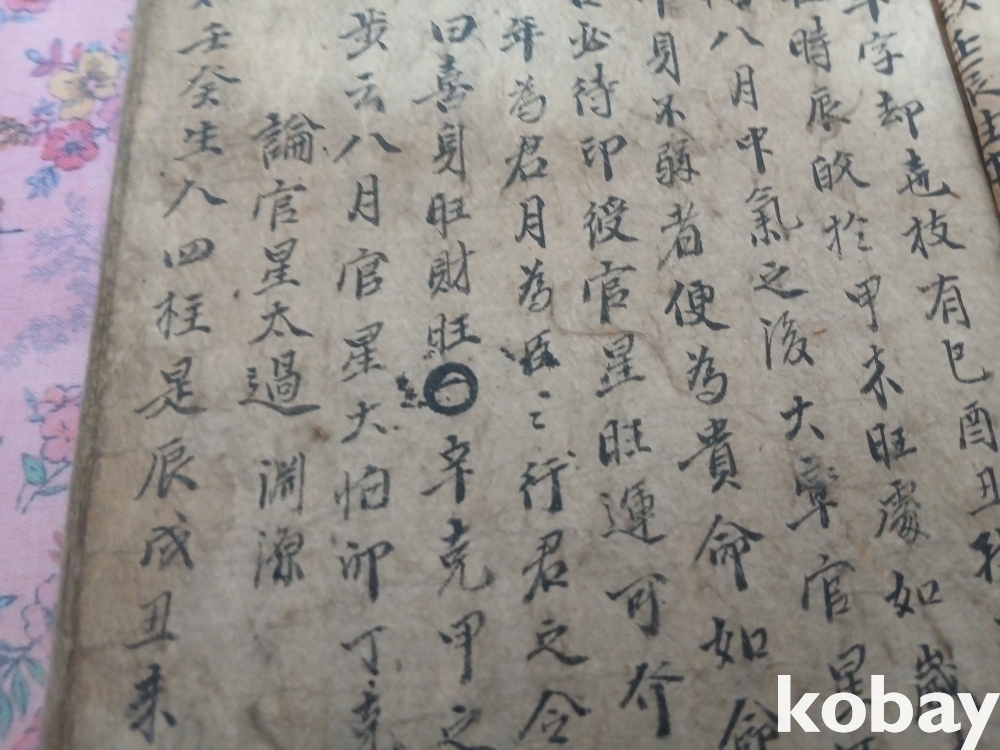 壬辰
字却克枝有巳酉丑
時辰的於甲未旺處如歲
八月中氣之後大率官星
身不弱者便為貴命如命
必待印綬官星旺運可
年為君月為臣ミ行君之令
曰喜身旺財旺 一 辛克甲之
步云八月官星大怕卯丁克
論官星太過 淵源
壬癸生人四柱是辰戌丑未
kobay